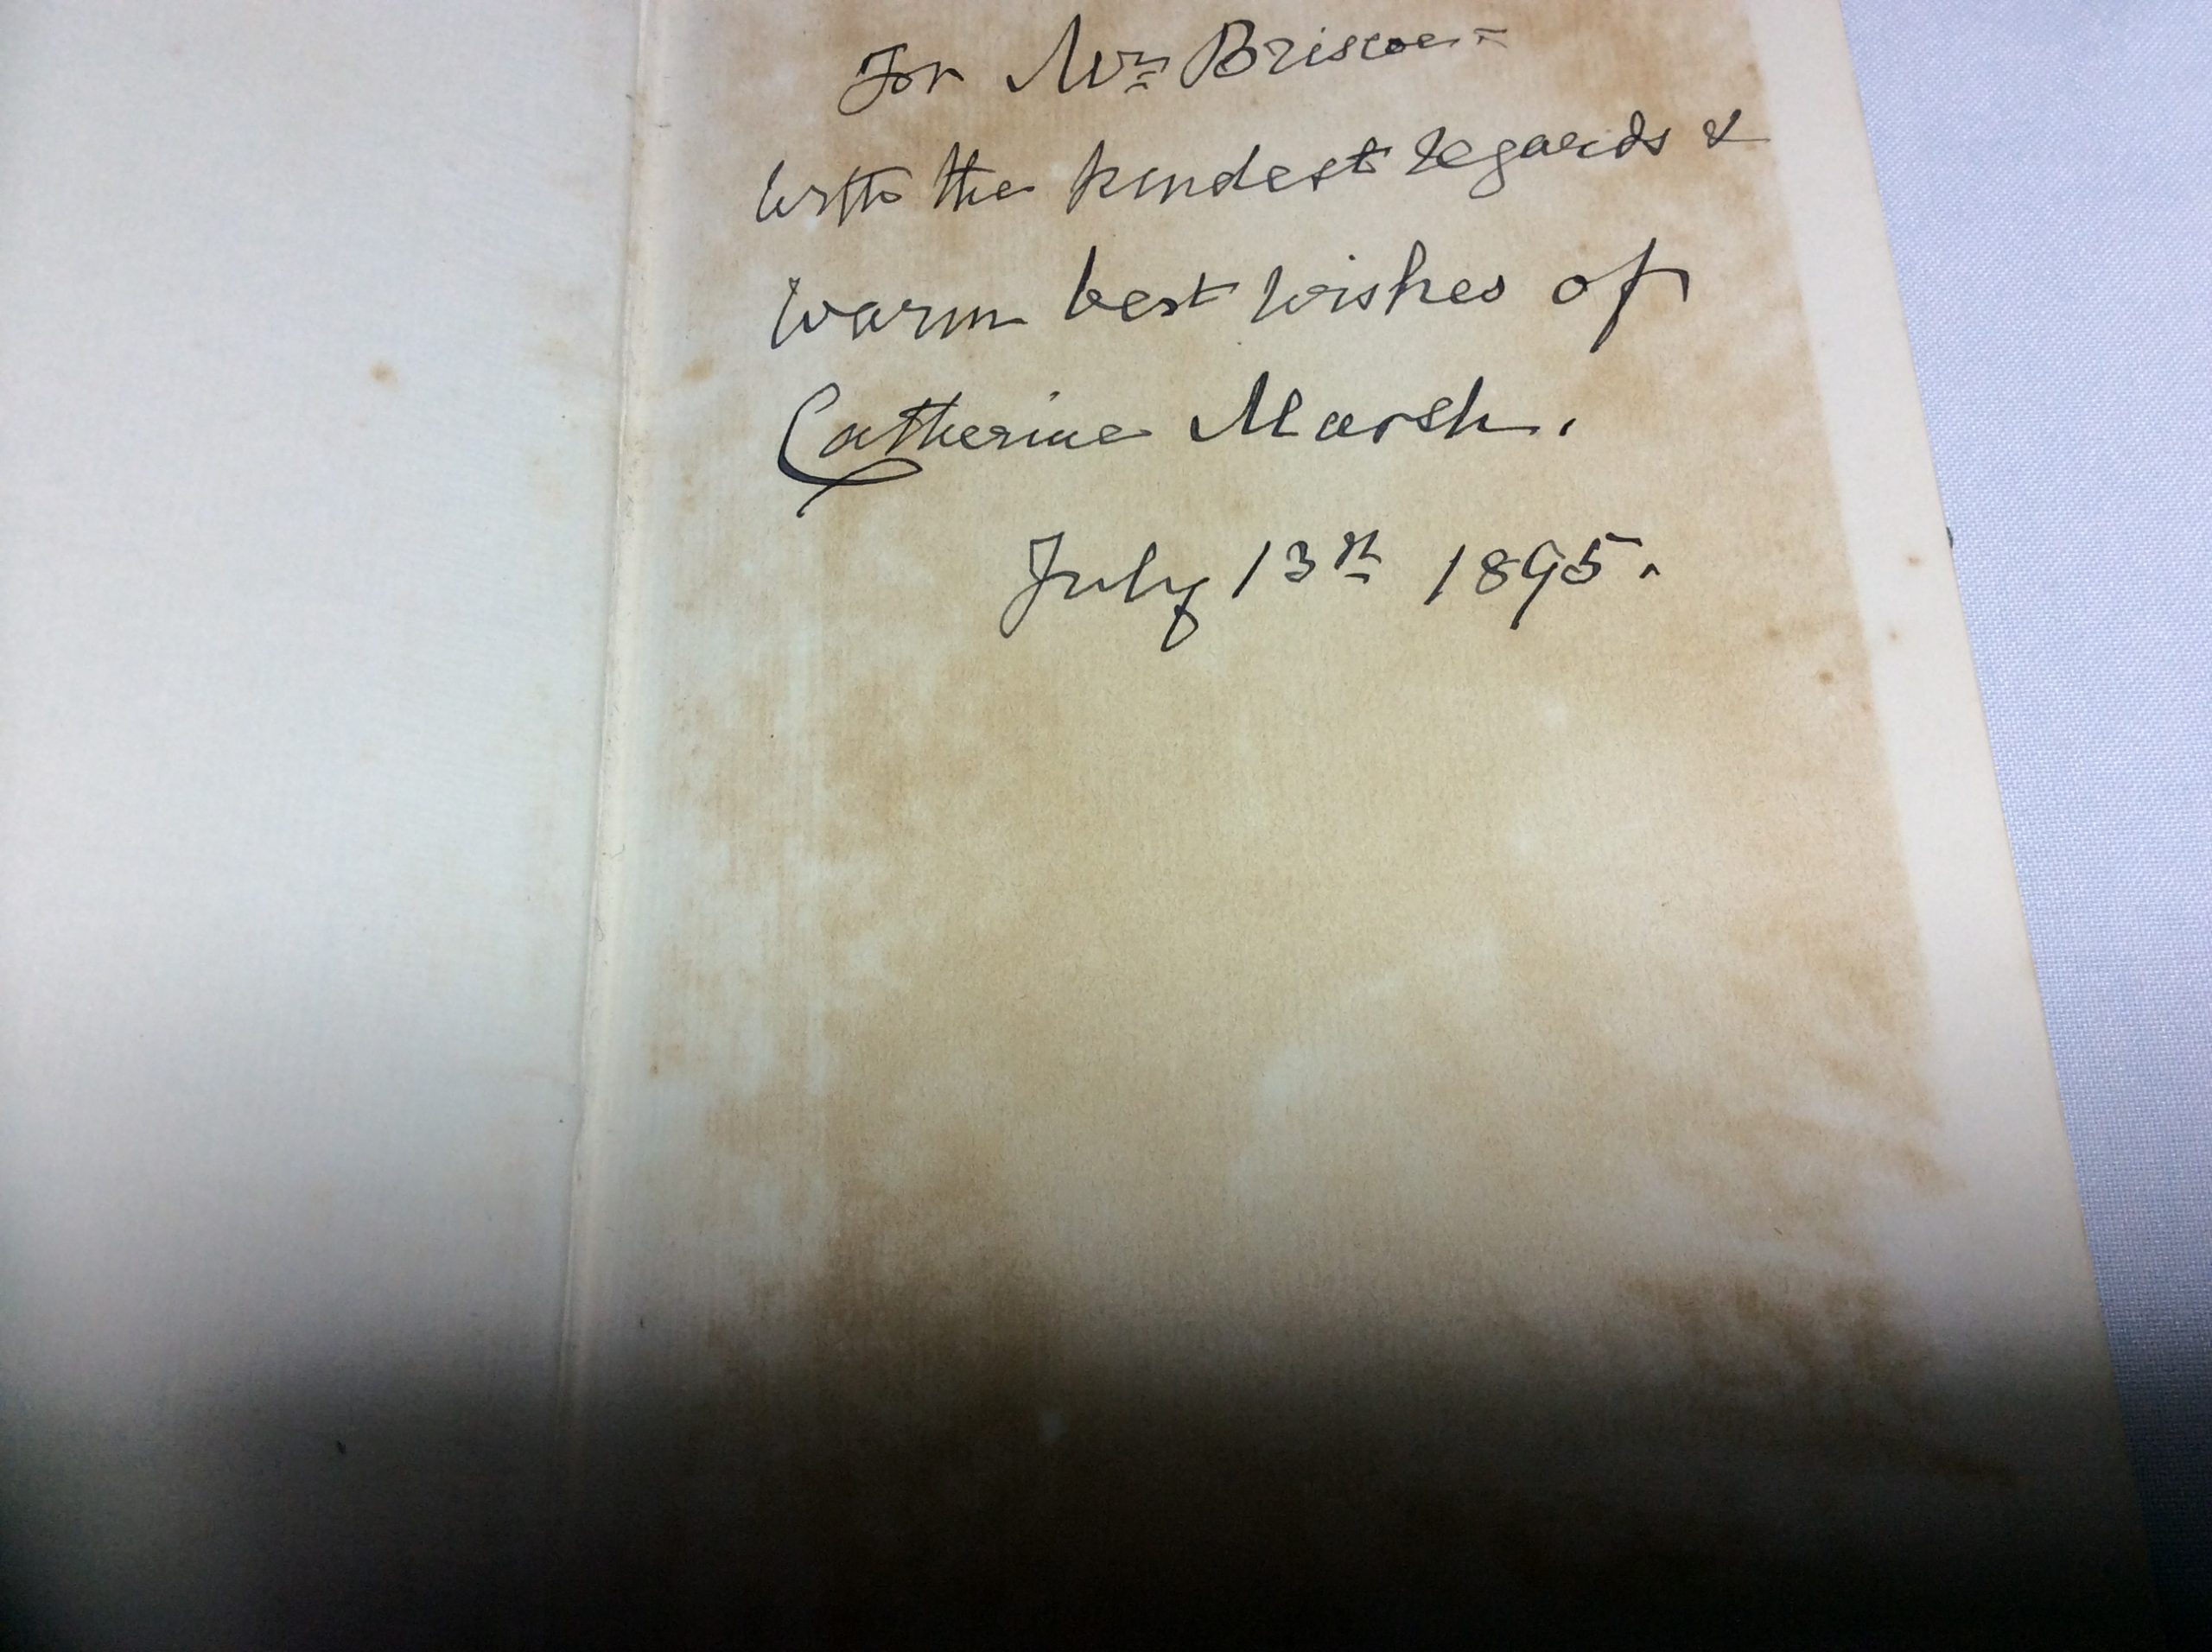 For Mrs Briscoe –
With the kindest regards &
warm best wishes of
Catherine Marsh.
July 13th 1895.